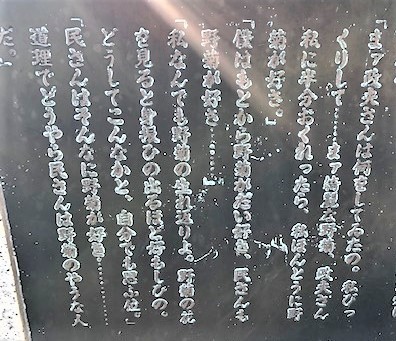 「まア政夫さんは何をしてゐたの。私びツ
くりして……まア綺麗な野菊、政夫さん
私に半分おくれツたら、私ほんとうに野
菊が好き。」
「僕はもとから野菊がだい好き、民さんも
野菊が好き………」
「私なんでも野菊の生れ返りよ。野菊の花
を見ると身振ひの出るほど好もしいの。
どうしてこんなかと、自分でも思ふ位。」
「民さんはそんなに野菊が好き…………
道理でどうやら民さんは野菊のやうな人
だ。」